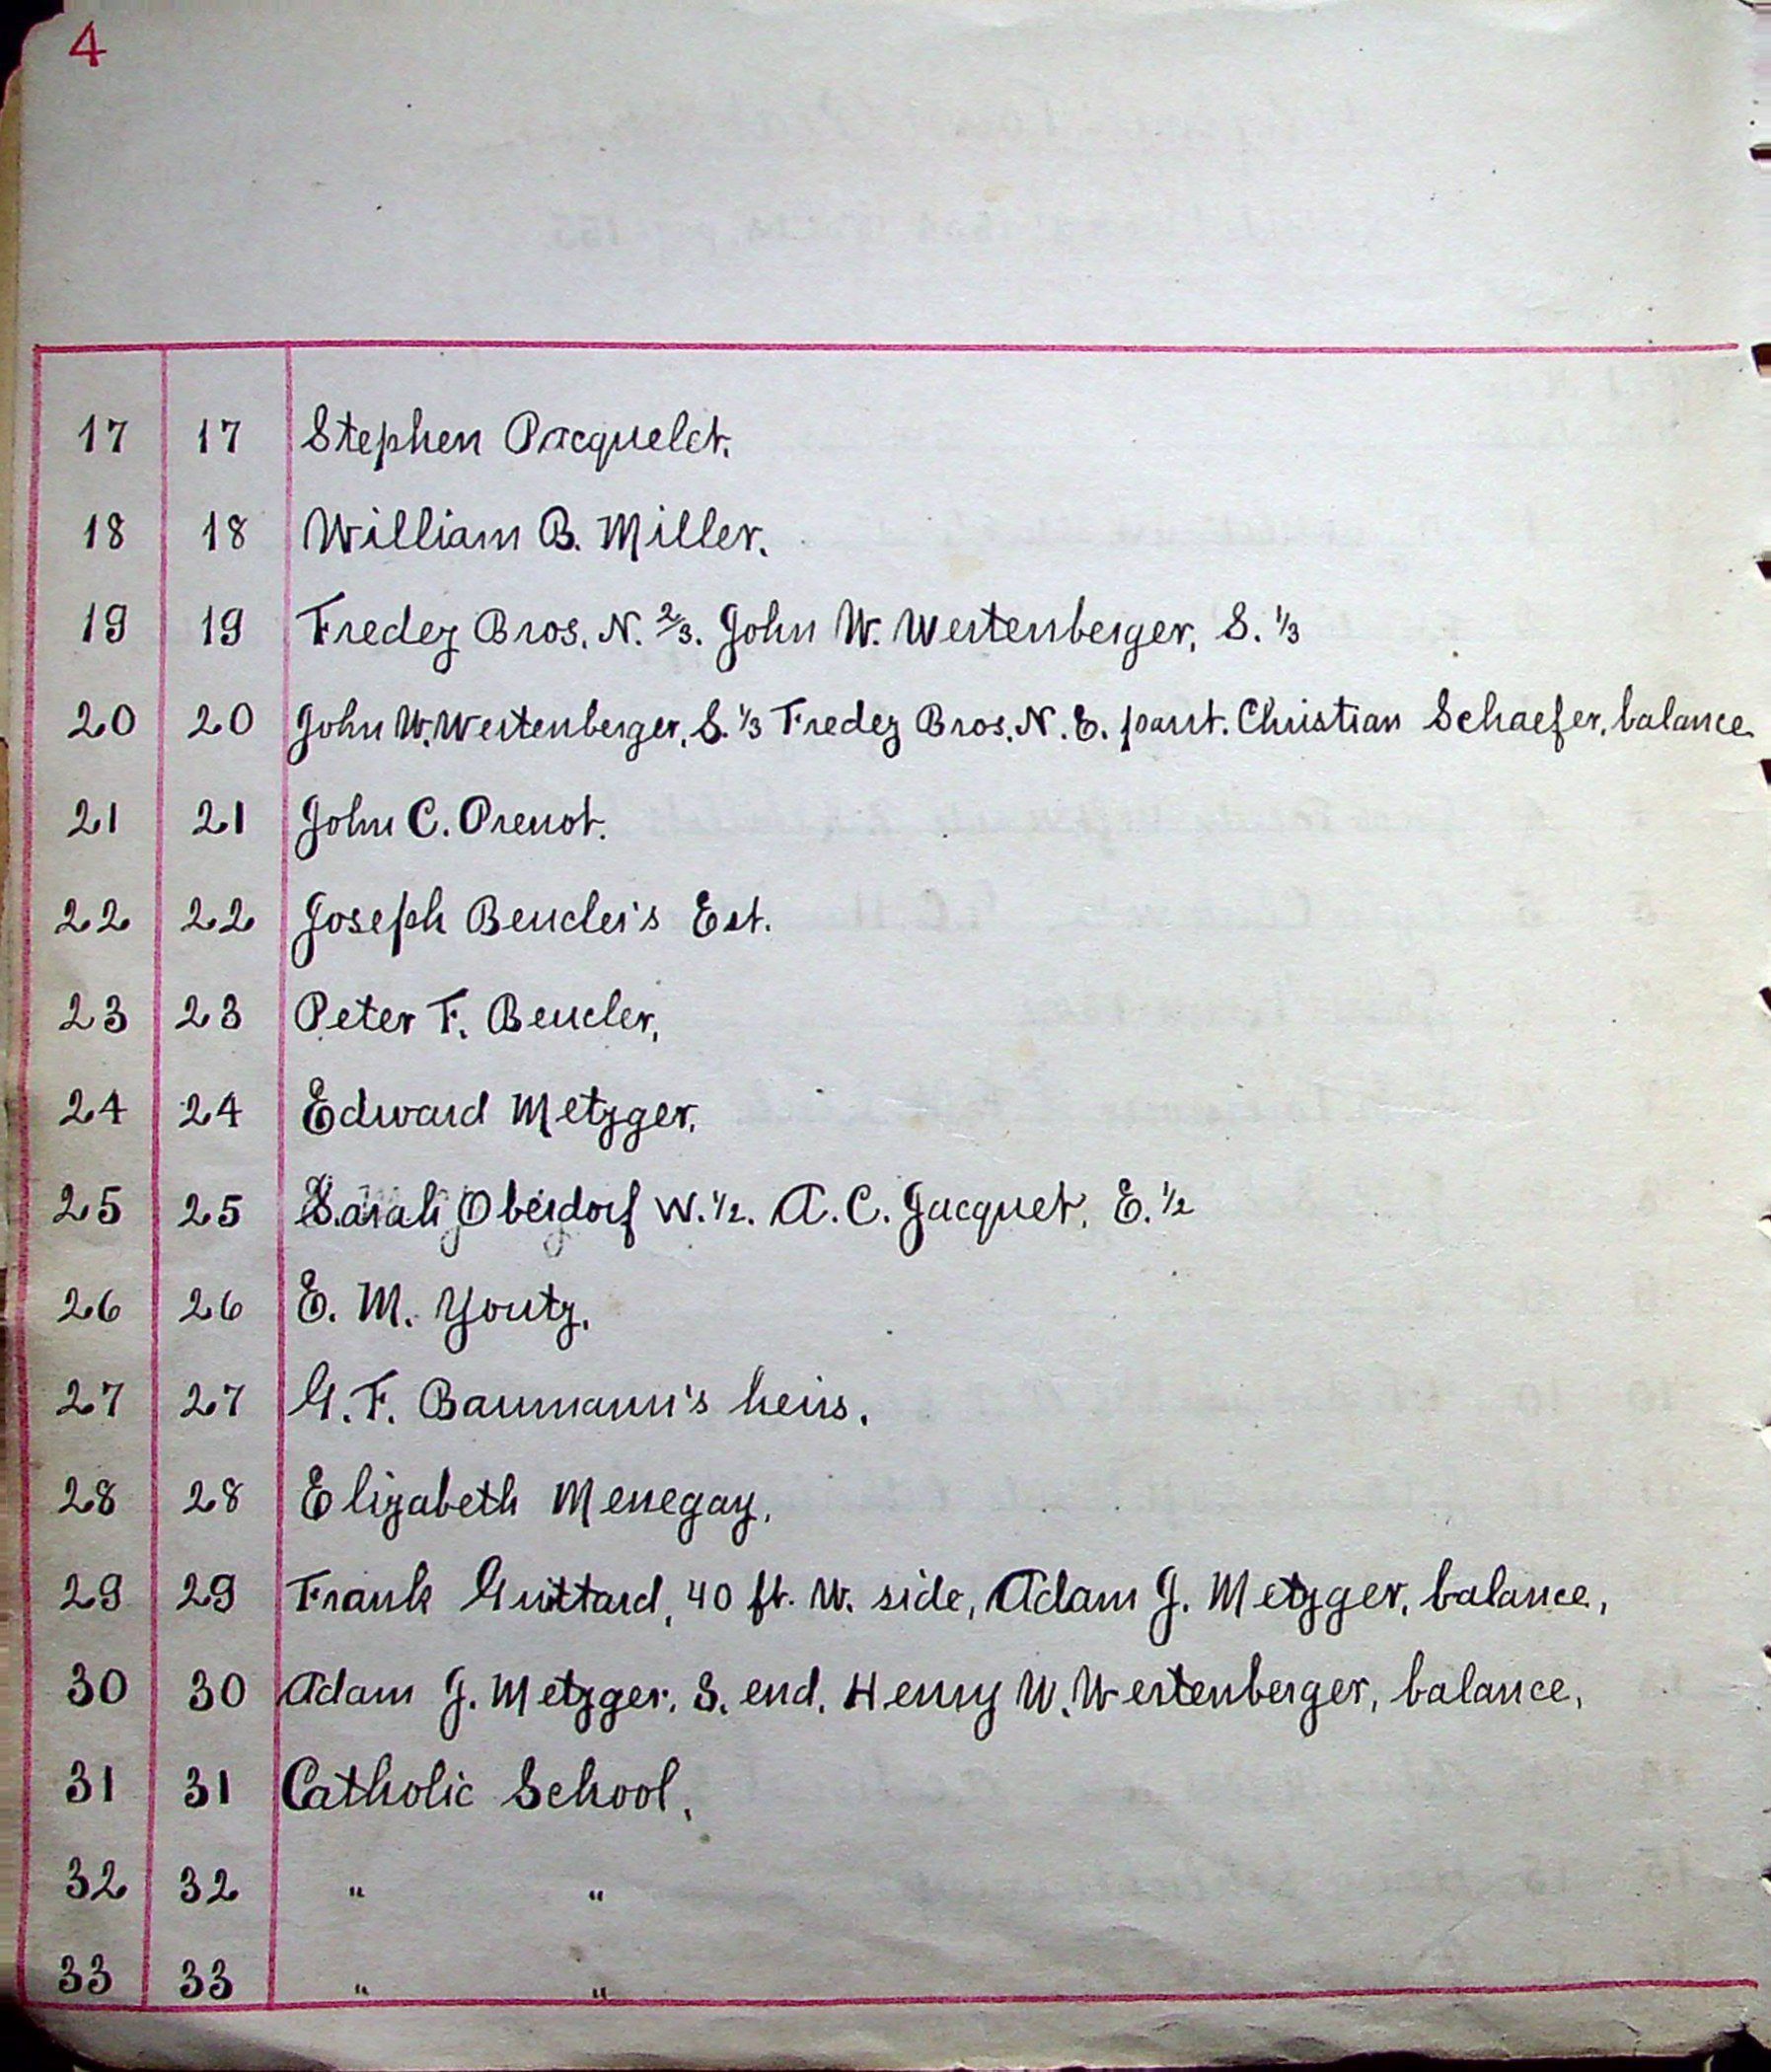 4
17 17 Stephen Pacquelet.
18 18 William B. Miller.
19 19 Fredez Bros. N. 2/3. John W. Wertenberger, S. 1/3
20 20 John W. Wertenberger, S. 1/3 Fredez Bros. N. E. part. Christian Schaefer, balance.
21 21 John C. Prenot.
22 22 Joseph Beucler's Est.
23 23 Peter F. Beucler,
24 24 Edward Metzger,
25 25 Sarah Oberdorf W. 1/2. A. C. Jacquet, E. 1/2
26 26 E. M. Youtz,
27 27 G. F. Baumann's heirs,
28 28 Elizabeth Menegay,
29 29 Frank Guittard, 40 ft. W. side, Adam J. Metzger, balance,
30 30 Adam J. Metzger, S. end, Henry W. Wertenberger, balance,
31 31 Catholic School,
32 32 " "
33 33 " "